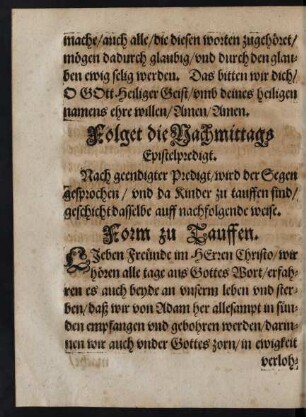 mache/auch alle/die diesen worten zugehöret/
mögen dadurch glaubig/vnd durch den glau-
ben ewig selig werden. Das bitten wir dich/
O GOtt Heiliger Geist/vmb deines heiligen
namens ehre willen/Amen/Amen.
Folget die Nachmittags
Epistelpredigt.
Nach geendigter Predigt/wird der Segen
gesprochen/vnd da Kinder zu tauffen sind/
geschicht dasselbe auff nachfolgende weise.
Form zu Tauffen.
LIeben Freunde im HErren Christo/wir
hören alle tage aus Gottes Wort/erfah-
ren es auch beyde an vnserm leben vnd ster-
ben/daß wir von Adam her allesampt in sün-
den empfangen vnd gebohren werden/darin-
nen wir auch vnder Gottes zorn/in ewigkeit
verloh-